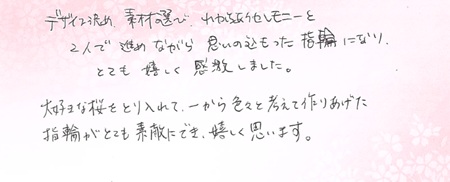 デザイン決め、素材の選び、わかちあうセレモニーと
2人で進めながら思いの込もった指輪になり、
とても嬉しく感激しました。
大好きな桜をとり入れて、一から色々と考えて作りあげた
指輪がとても素敵にでき、嬉しく思います。